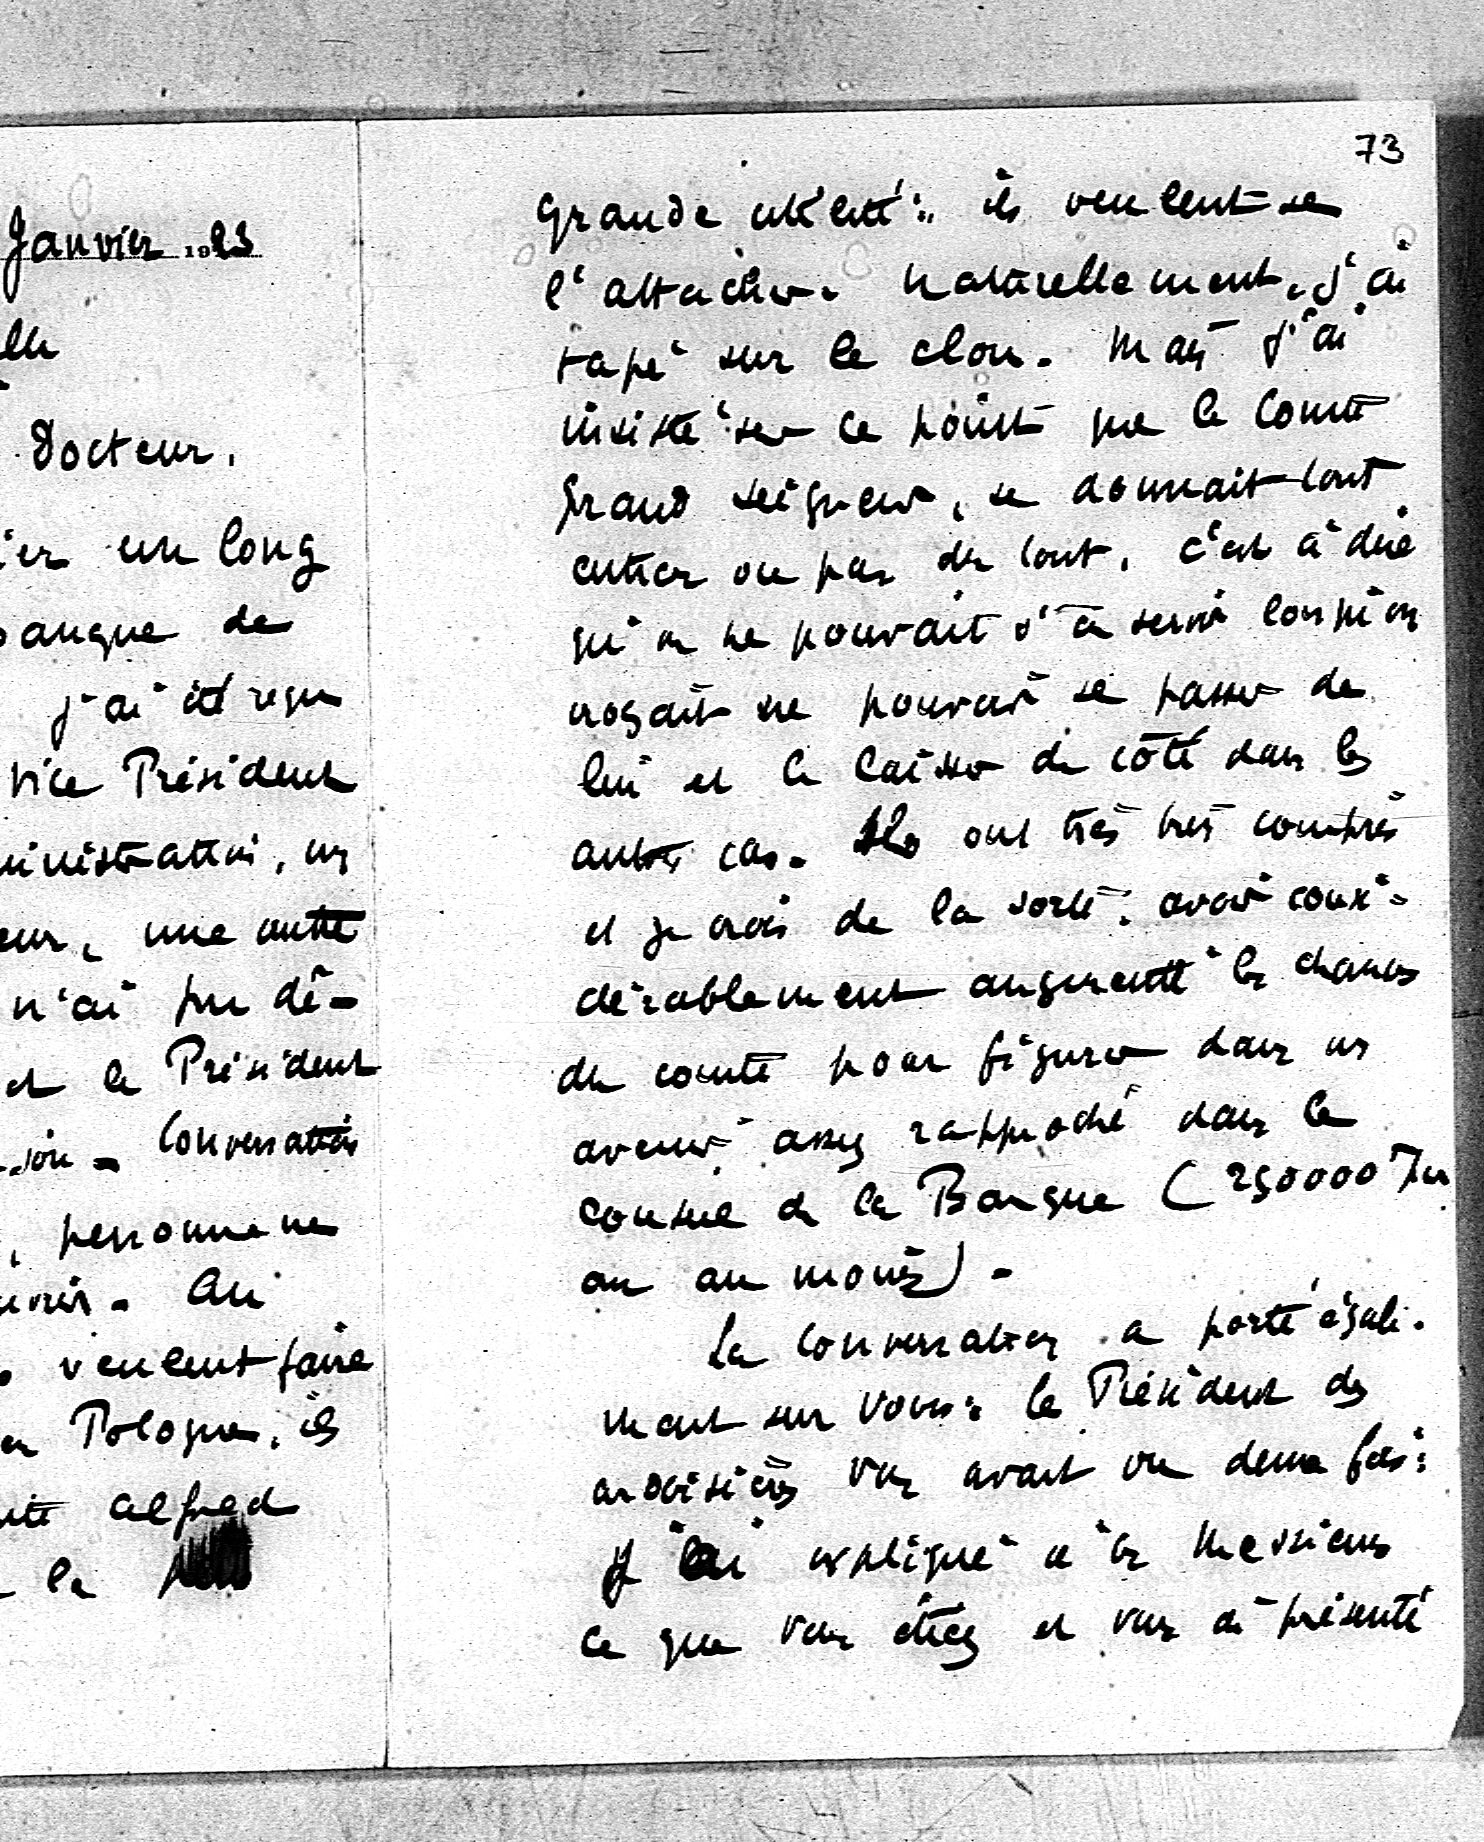 Janvier 1923
lle
Docteur,
ier un long
banque de
j'ai été reçu
vice Président
ministration, un
eur, une autre
n'ai pu dé-
et le Président
Conversation
, personne ne
Au
veulent faire
Pologne, ils
Alfred
la
73
grande utilité : ils veulent se
l'attacher. Naturellement, j'ai
tapé sur le clou. Mais j'ai
insisté sur ce point que le Comte
grand seigneur, se donnait tout
entier ou pas du tout, c'est à dire
qu'on ne pouvait s'en servir lorsqu'on
croyait ne pouvoir se passer de
lui et le laisser de côté dans les
autres cas. Ils ont très bien compris
et je crois de la sorte avoir consi-
dérablement augmenté les chances
du comte pour figurer dans un
avenir assez rapproché dans le
conseil de la Banque (250000 frs
an au moins) -
La conversation a porté égale-
ment sur vous : le Président des
ardoisières vous avait vu deux fois :
j'ai expliqué à ces Messieurs
ce que vous étiez et vous ai présenté